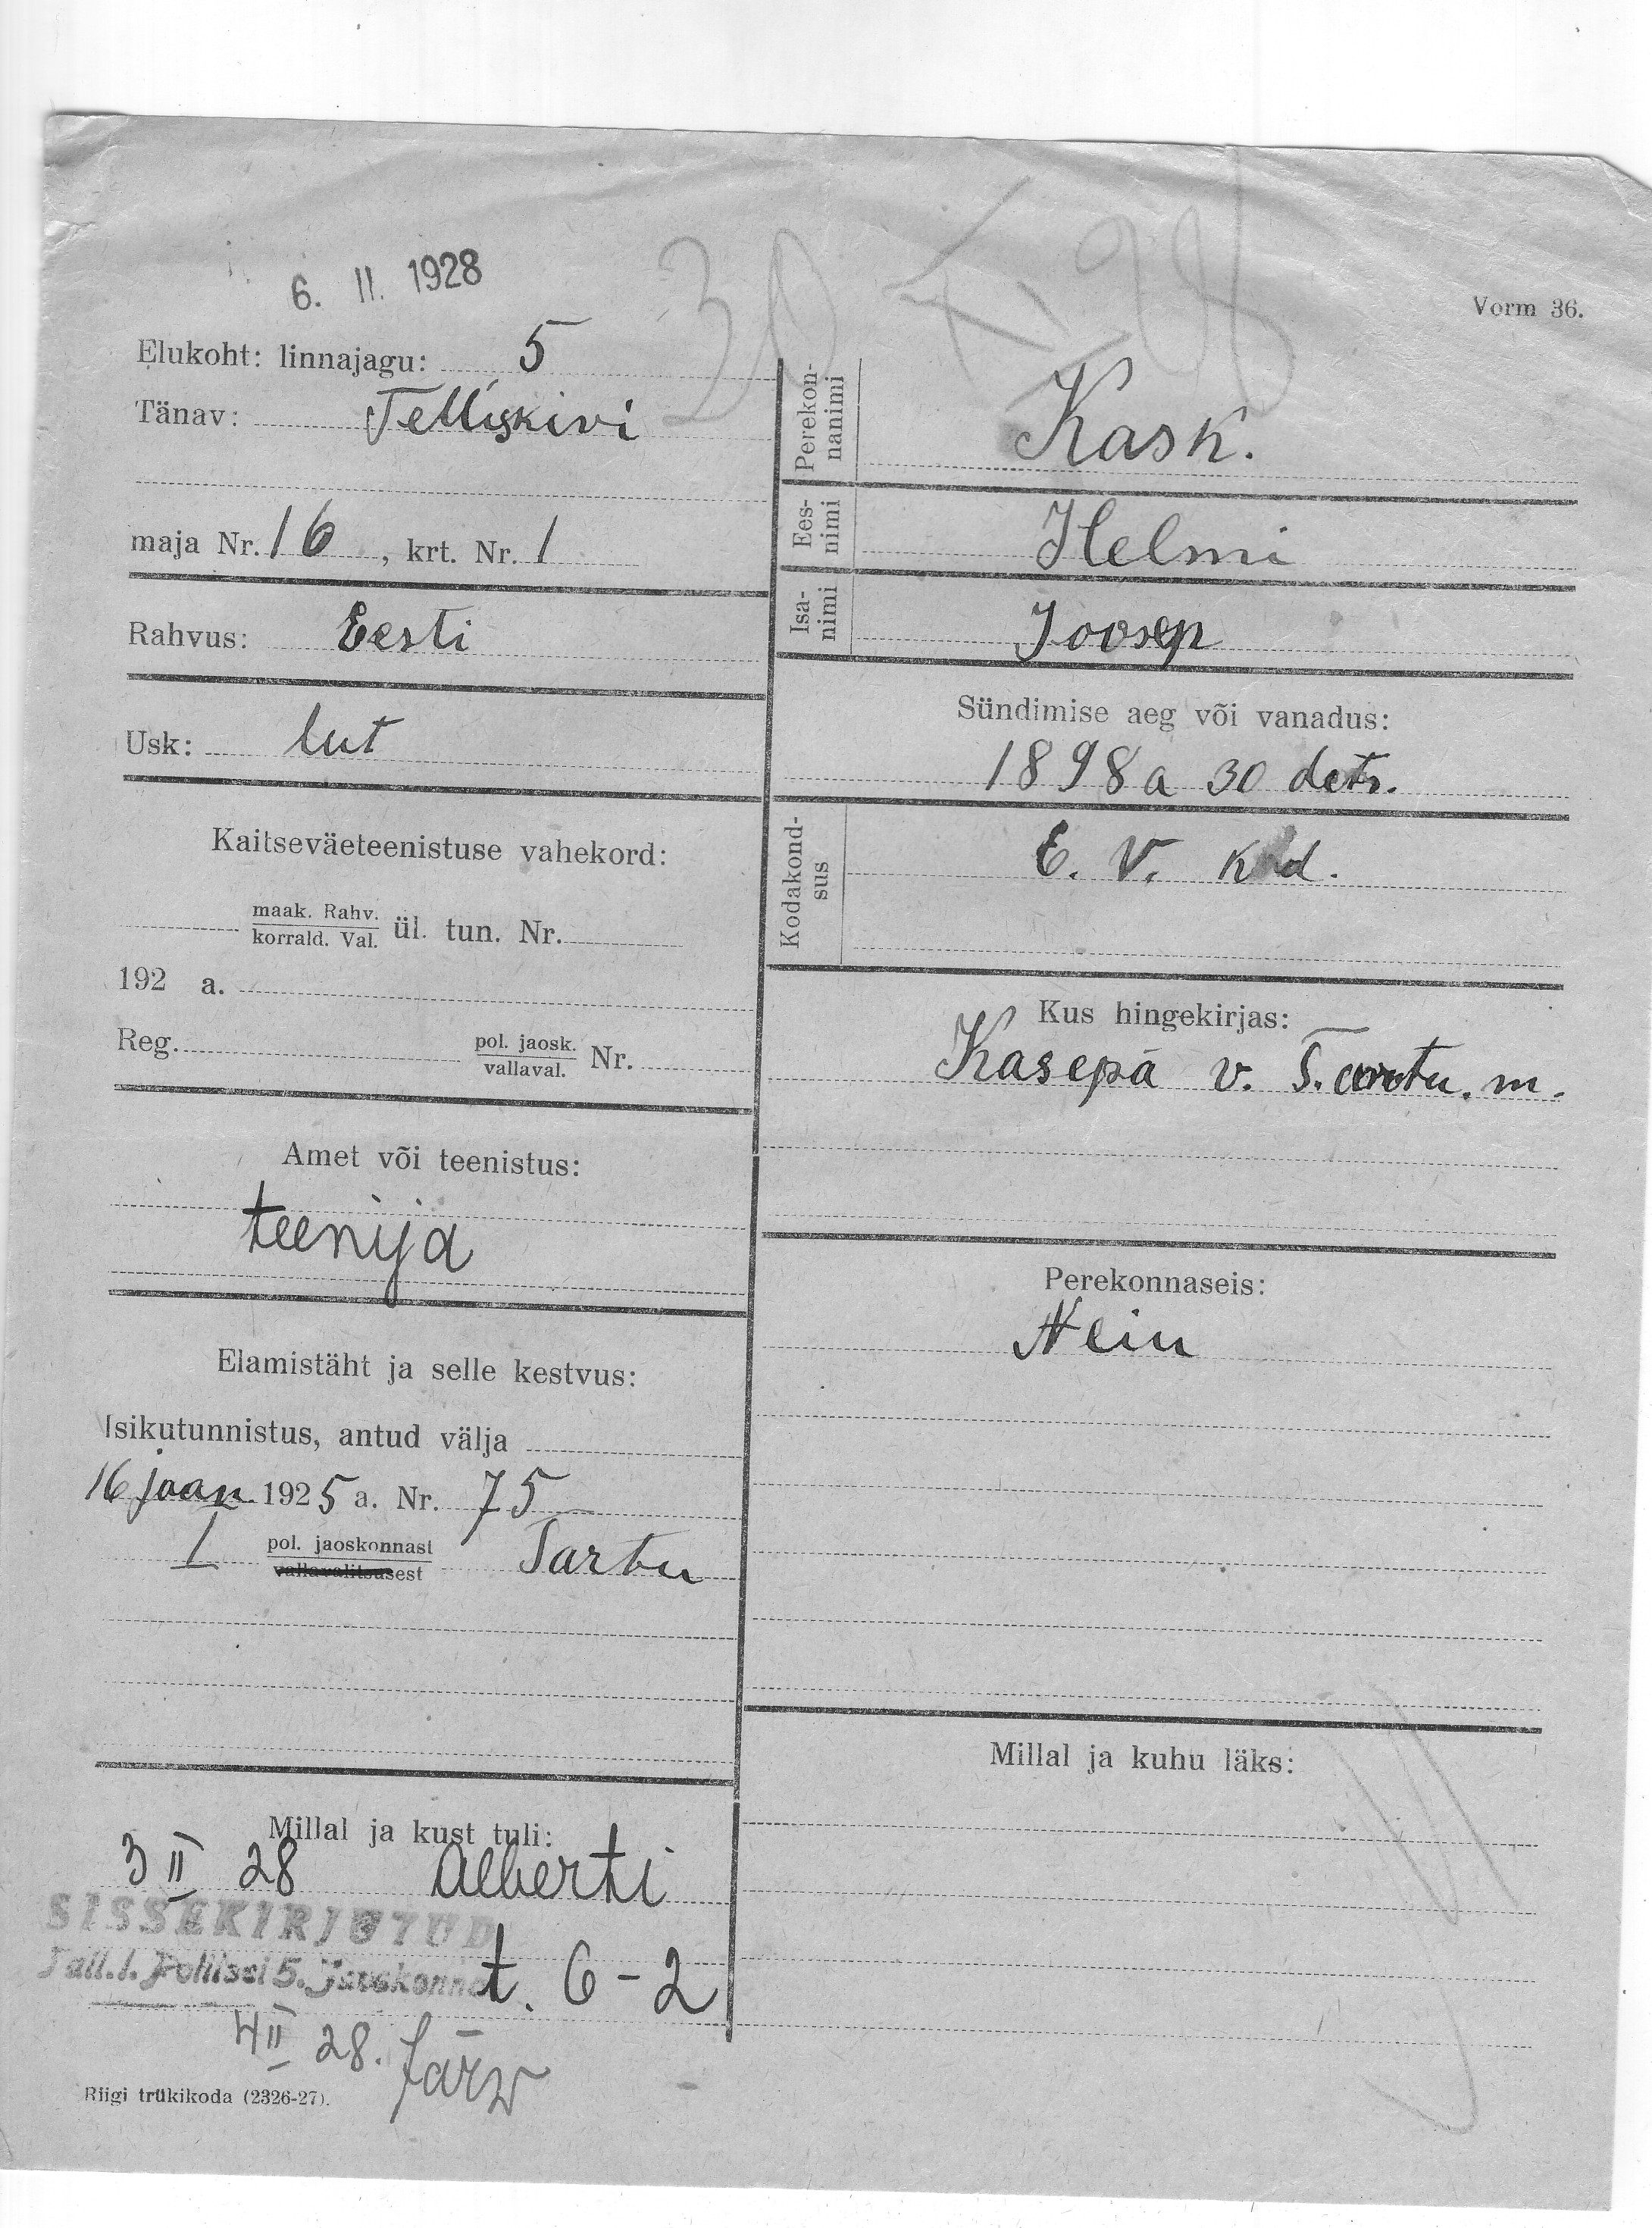 6. II. 1928
30 X 28
Vorm 36.
Elukoht: linnajagu: 5
Tänav: Telliskivi
maja Nr. 16, krt. Nr. 1
Rahvus: Eesti
Usk: lut
Kaitseväeteenistuse vahekord:
maak. Rahv.
korrald. Val. ül. tun. Nr.
192 a.
Reg. pol. jaosk.
vallaval. Nr.
Amet või teenistus:
teenija
Elamistäht ja selle kestvus:
Isikutunnistus, antud välja
16 jaan. 1925 a. Nr. 75
I pol. jaoskonnast Tartu
vallavalitsusest
Millal ja kust tuli:
3 II 28 Alberti
SISSEKIRJUTUD
Tall. l. Politsei 5. Jaoskonnas
t. 6-2
4 II 28. Järw
Riigi trükikoda (2326-27).
Perekon-
nanimi Kask.
Ees-
nimi Helmi
Isa-
nimi Joosep
Sündimise aeg või vanadus:
1898 a 30 dets.
Kodakond-
sus E. V. kod.
Kus hingekirjas:
Kasepä v. Tartu. m.
Perekonnaseis:
Neiu
Millal ja kuhu läks: